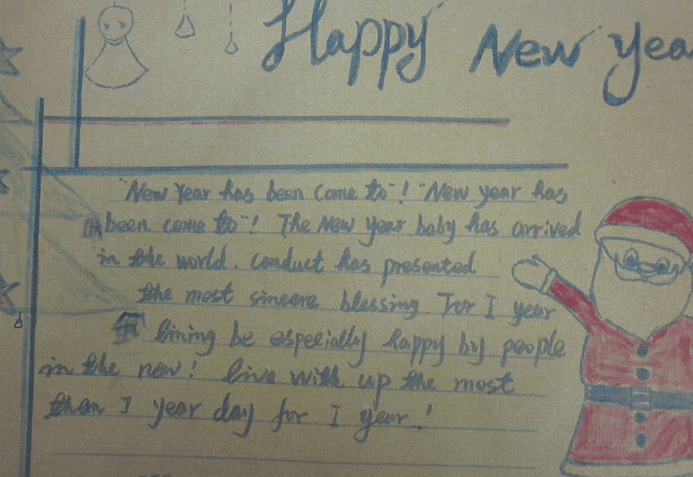 Happy New Year
"New Year has been come to"! "New year has
been come to"! The New year baby has arrived
in the world. conduct has presented
the most sincere blessing. For I year
lining be especially happy by people
in the new! live with up the most
than I year day for I year!